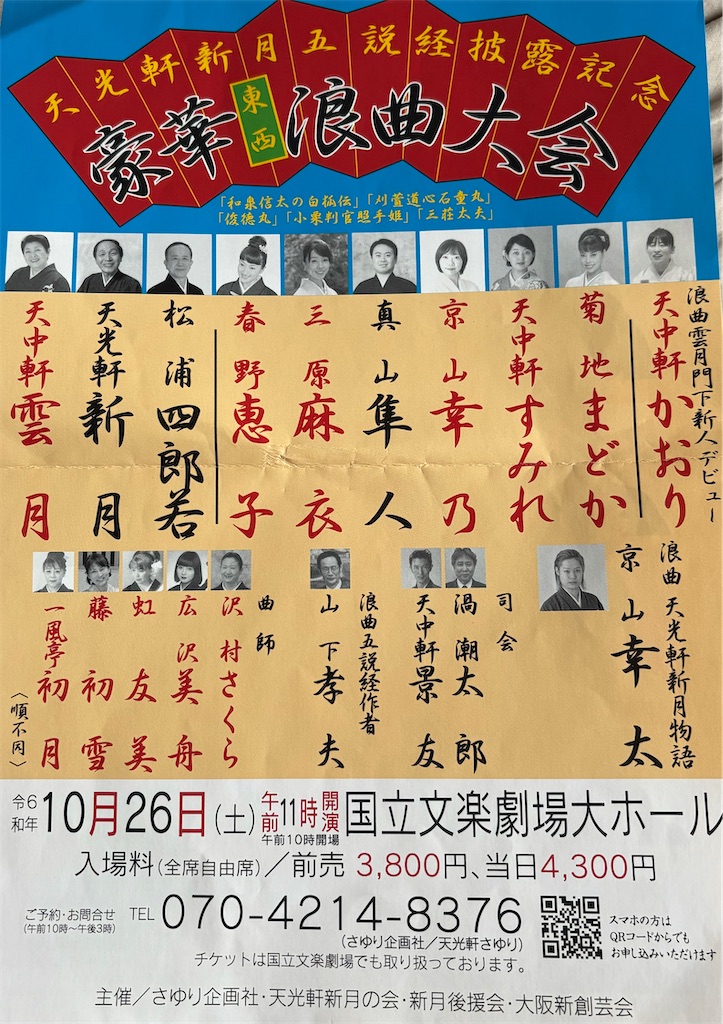 天光軒新月五説経披露記念
豪華東西浪曲大会
「和泉信太の白狐伝」「刈萱道心石童丸」
「俊徳丸」「小栗判官照手姫」「三荘太夫」
浪曲雲月門下新人デビュー
天中軒かおり
菊地まどか
天中軒すみれ
京山幸乃
真山隼人
三原麻衣
春野恵子
松浦四郎若
天光軒新月
天中軒雲月
浪曲 天光軒新月物語
京山幸太
司会
渦潮太郎
天中軒景友
浪曲五説経作者
山下孝夫
曲師
沢村さくら
広沢美舟
虹友美
藤初雪
一風亭初月
〈順不同〉
令和6年10月26日(土)午前11時開演 国立文楽劇場大ホール
午前10時開場
入場料(全席自由席)/前売 3,800円、当日4,300円
ご予約・お問合せ TEL 070-4214-8376
(午前10時〜午後3時)
(さゆり企画社/天光軒さゆり)
チケットは国立文楽劇場でも取り扱っております。
スマホの方は
QRコードからでも
お申し込みいただけます
主催/さゆり企画社・天光軒新月の会・新月後援会・大阪新創芸会